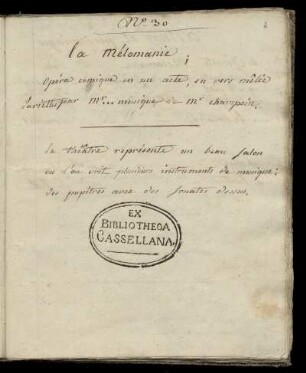 N° 30
2
la mélomanie,
opéra comique en un acte, en vers mêlée
d'ariettes par mr... musique de mr champein.
le théâtre représente un beau salon
ou l'on voit plusieurs instruments de musique;
des pupitres avec des sonates dessus.
EX
BIBLIOTHECA
CASSELLANA